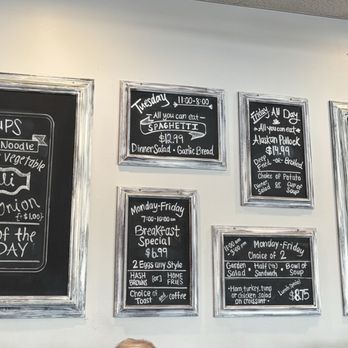 UPS
Noodle
Vegetable
li
Onion
(+$1.00)
of the
DAY
Tuesday 11:00-8:00
All you can eat
SPAGHETTI
$12.99
Dinner Salad • Garlic Bread
Friday All Day
All you can eat
Alaskan Pollock
$14.99
Deep Fried or Broiled
Choice of Potato
Dinner Salad & Cup of Soup
Monday-Friday
7:00-10:00
Breakfast
Special
$6.99
2 Eggs any Style
HASH BROWNS (or) HOME FRIES
Choice of Toast and coffee
11:00am 3:00pm Monday-Friday
Choice of 2
Garden Salad • Half (½) Sandwich • Bowl of Soup
• Ham, turkey, tuna
or chicken salad
on croissant •
$8.75